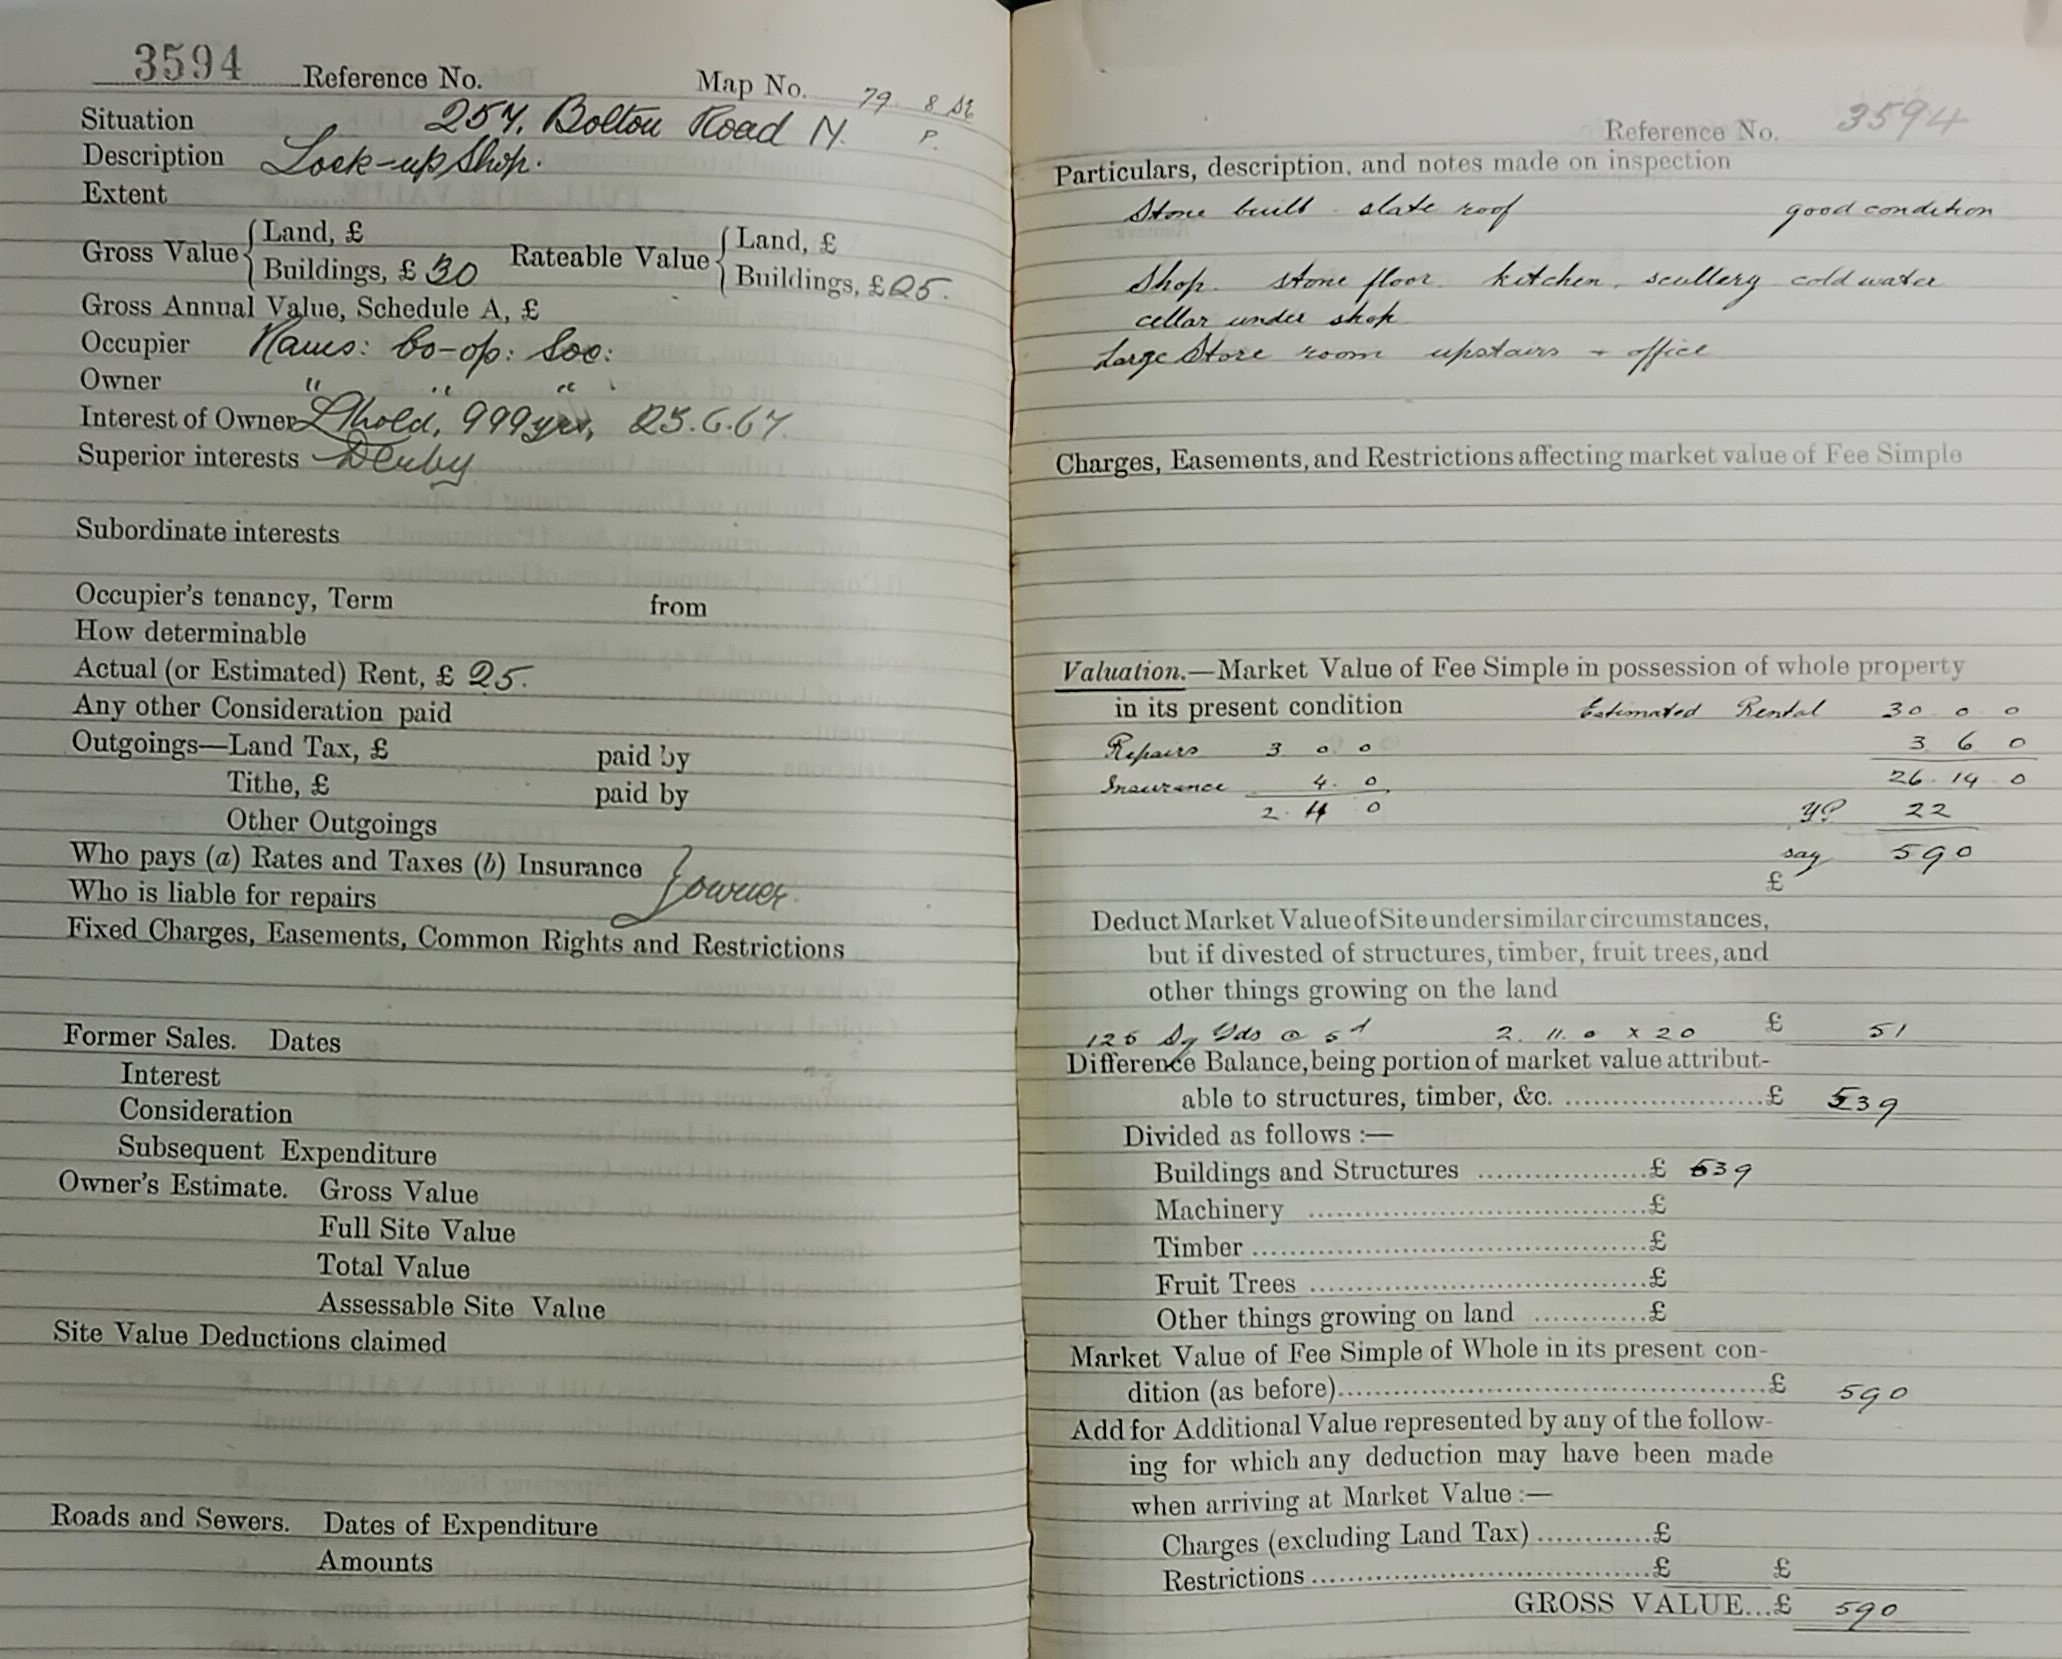 3594 Reference No. Map No. 79 8 SE
P.
Situation 257, Bolton Road N.
Description Lock-up Shop.
Extent
Gross Value { Land, £ Rateable Value { Land, £
Buildings, £ 30 Buildings, £ 25.
Gross Annual Value, Schedule A, £
Occupier Rams: Co-op: Soc:
Owner " " " "
Interest of Owner L'hold, 999 yrs, 25.6.67.
Superior interests Derby
Subordinate interests
Occupier's tenancy, Term from
How determinable
Actual (or Estimated) Rent, £ 25.
Any other Consideration paid
Outgoings—Land Tax, £ paid by
Tithe, £ paid by
Other Outgoings
Who pays (a) Rates and Taxes (b) Insurance } owner.
Who is liable for repairs
Fixed Charges, Easements, Common Rights and Restrictions
Former Sales. Dates
Interest
Consideration
Subsequent Expenditure
Owner's Estimate. Gross Value
Full Site Value
Total Value
Assessable Site Value
Site Value Deductions claimed
Roads and Sewers. Dates of Expenditure
Amounts
Reference No. 3594
Particulars, description, and notes made on inspection
Stone built . slate roof good condition
Shop. stone floor. kitchen, scullery cold water
cellar under shop
Large Store room upstairs + office
Charges, Easements, and Restrictions affecting market value of Fee Simple
Valuation.—Market Value of Fee Simple in possession of whole property
in its present condition Estimated Rental 30 0 0
Repairs 3 0 0 3 6 0
Insurance 4. 0 26 14 0
2. 4 0 YP 22
say 590
£
Deduct Market Value of Site under similar circumstances,
but if divested of structures, timber, fruit trees, and
other things growing on the land
125 Sq Yds @ 5d 2. 11. 0 x 20 £ 51
Difference Balance, being portion of market value attribut-
able to structures, timber, &c. ...................... £ 539
Divided as follows :—
Buildings and Structures .................. £ 539
Machinery .................................... £
Timber .......................................... £
Fruit Trees .................................... £
Other things growing on land ............ £
Market Value of Fee Simple of Whole in its present con-
dition (as before) .................................................. £ 590
Add for Additional Value represented by any of the follow-
ing for which any deduction may have been made
when arriving at Market Value :—
Charges (excluding Land Tax) ............ £
Restrictions ..................................... £ £
GROSS VALUE... £ 590